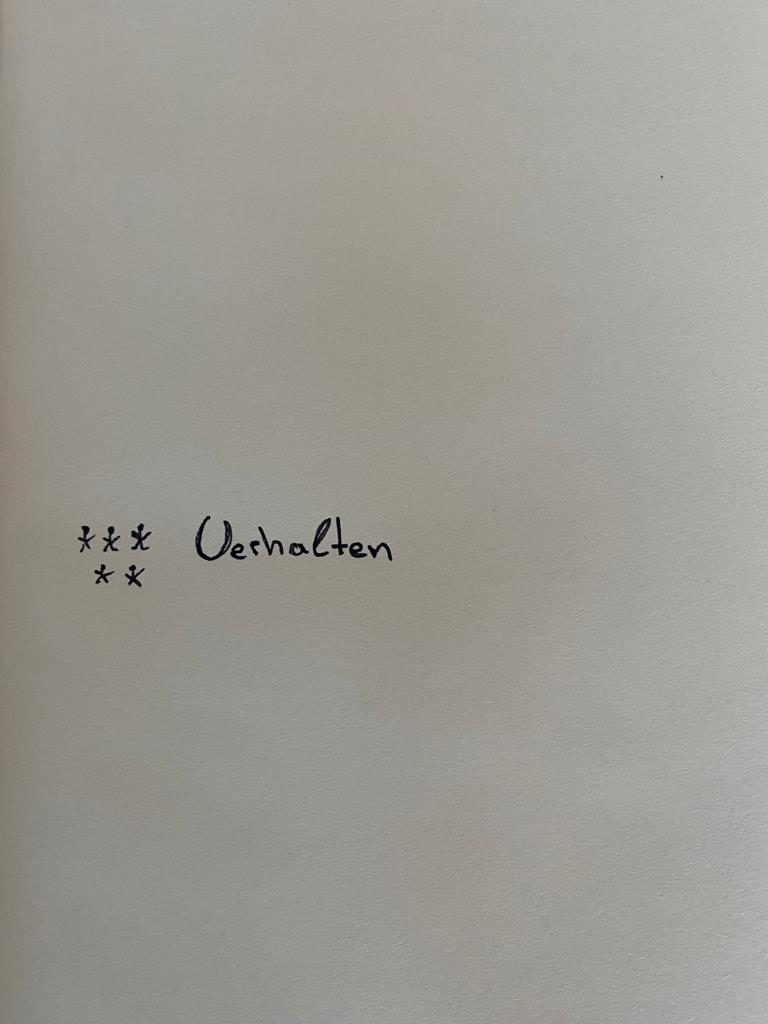 *** Verhalten
**